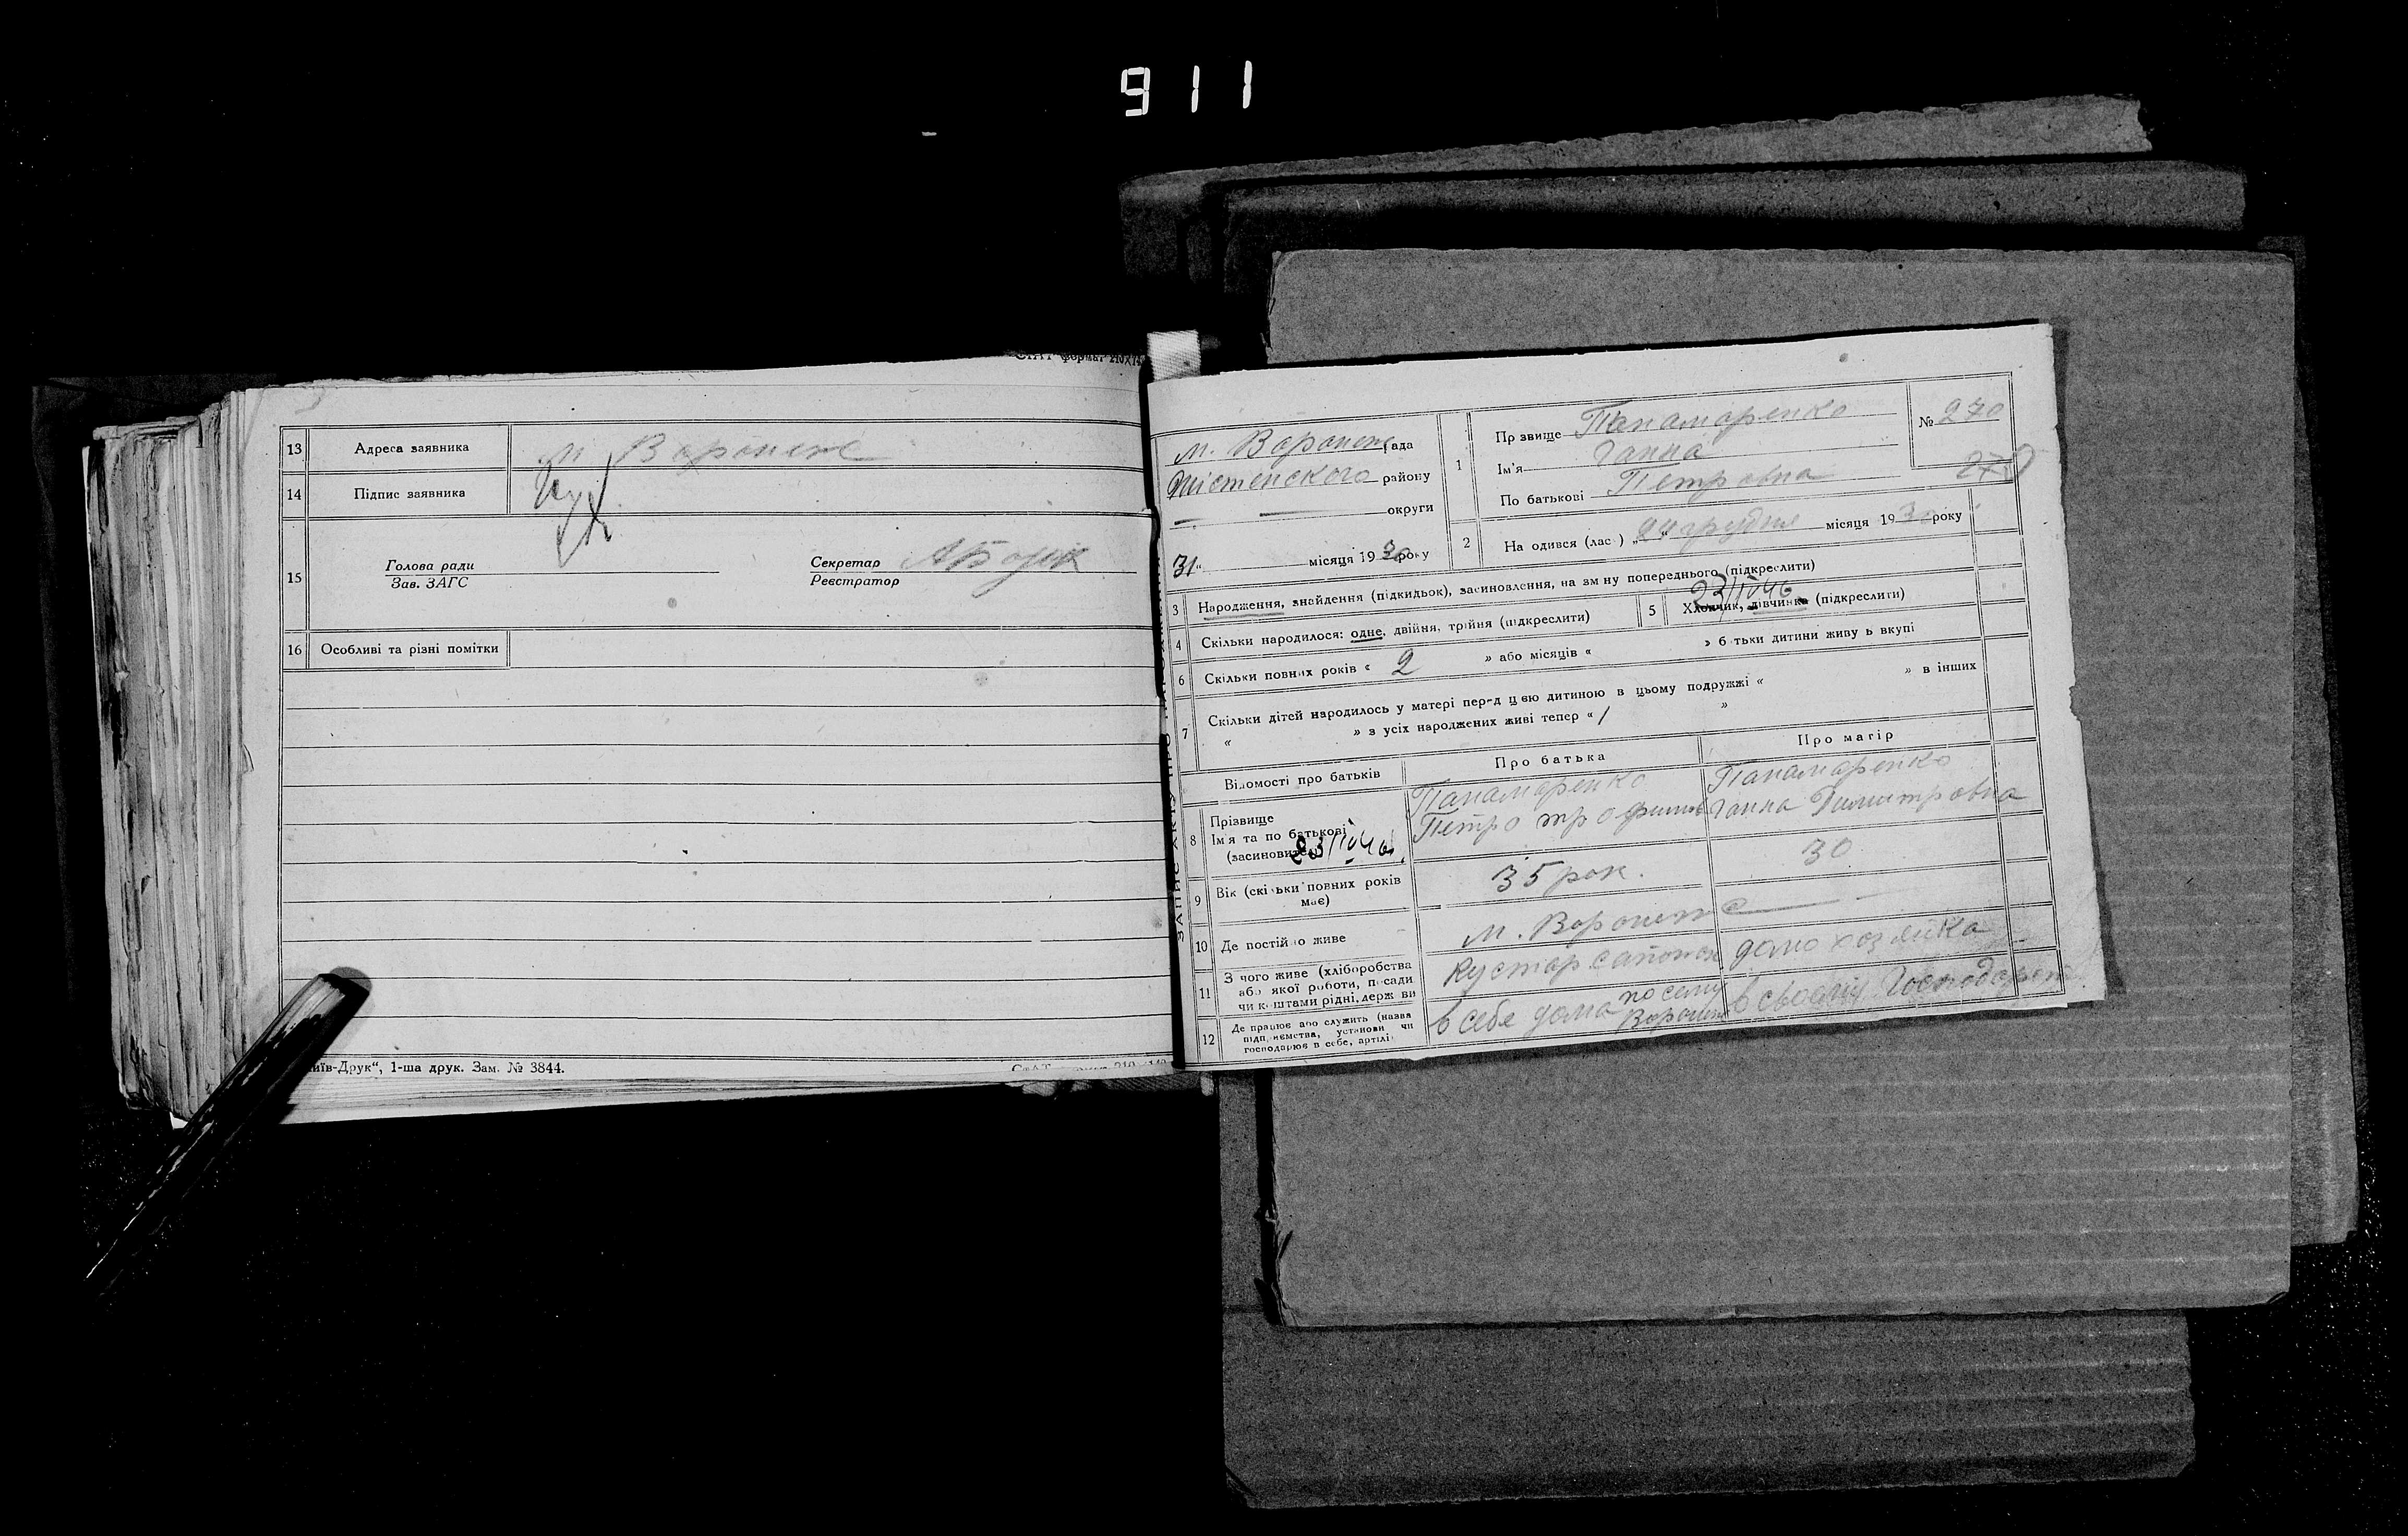 911
СтАТ формат 210
13 Адреса заявника м Вороніж
14 Підпис заявника
15 Голова ради
Зав. ЗАГС
Секретар
Реєстратор
16 Особливі та різні помітки
иїв-Друк“, 1-ша друк. Зам. № 3844.
м. Вороніж рада
району
округи
31 “ місяця 1930 року
1 Пр звище Панамаренко
Ім'я Ганна
По батькові Петровна
№ 270
270
2 На одився (лас ) „24“ грудня місяця 1930 року
3 Народження, знайдення (підкидьок), засиновлення, на зм ну попереднього (підкреслити)
23/IV 46
4 Скільки народилося: одне, двійня, трійня (підкреслити)
5 Хлопчик, дівчинка (підкреслити)
6 Скільки повних років « 2 » або місяців « » б тьки дитини живу ь вкупі
7 Скільки дітей народилось у матері перед цією дитиною в цьому подружжі « » в інших
« » з усіх народжених живі тепер « 1 »
Відомості про батьків Про батька Про матір
8 Прізвище
Ім'я та по батькові
(засиновител
23/IV 46
Панамаренко
Петро
Панамаренко
Ганна Димитровна
9 Вік (скільки повних років
має)
35 рок.
30
10 Де постійно живе м. Вороніж
11 З чого живе (хліборобства
або якої роботи, посади
чи коштами рідні, держ ви
Кустар сапожн
домохозяйка
12 Де працює або служить (назва
підп иємства, установи чи
господарює в себе, артілі
в себе дома по селу
Вороніж
в своему Господарст